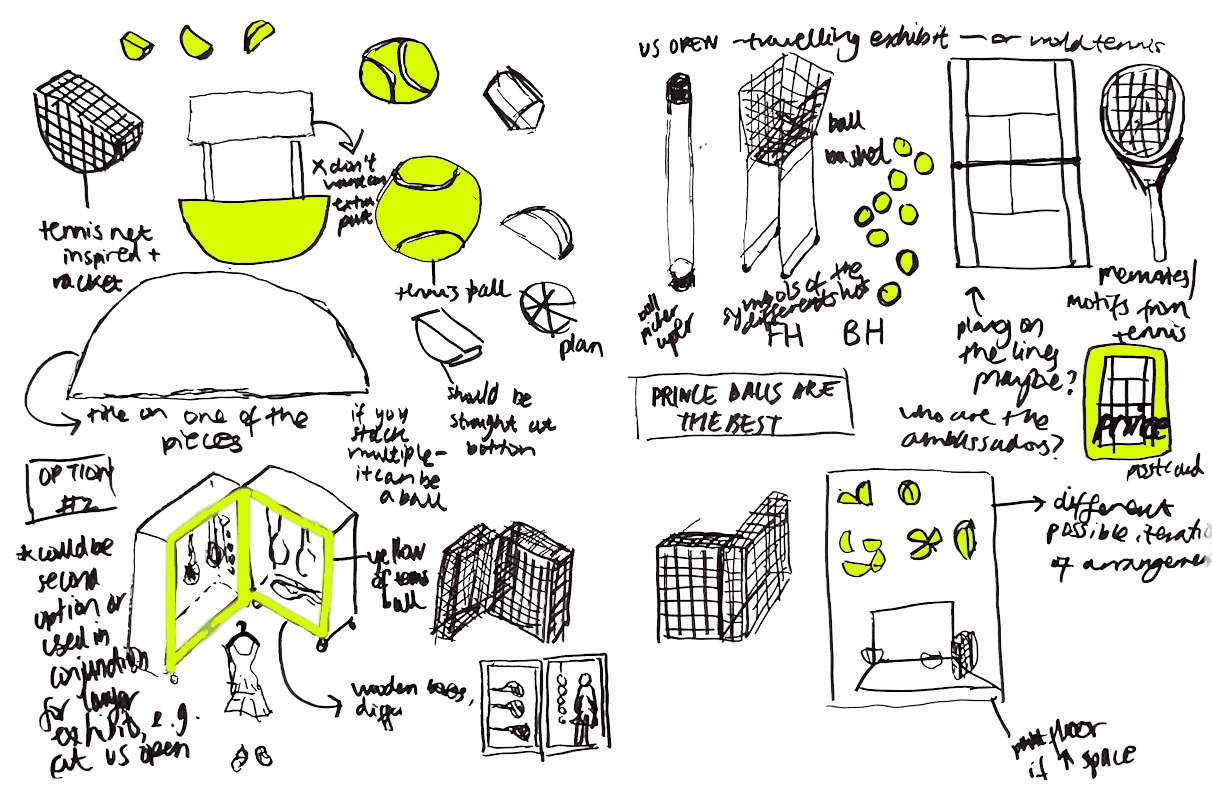 US OPEN - travelling exhibit - or mold tennis
x don't
extra
part
ball
basket
tennis net
inspired +
racket
tennis ball
plan
ball
picker
upper
symbols of the
different shots
FH BH
playing on
the lines
maybe?
memories/
motifs from
tennis
title on one of the
pieces
should be
straight cut
bottom
if you
stack
multiple-
it can be
a ball
PRINCE BALLS ARE
THE BEST
who are the
ambassadors?
prince
postcard
OPTION
#2
* could be
second
option or
used in
conjunction
for larger
exhibits, e.g.
at US open
yellow
of tennis
ball
wooden
different
possible iteratio
of arrangemen
floor
if ↑ space